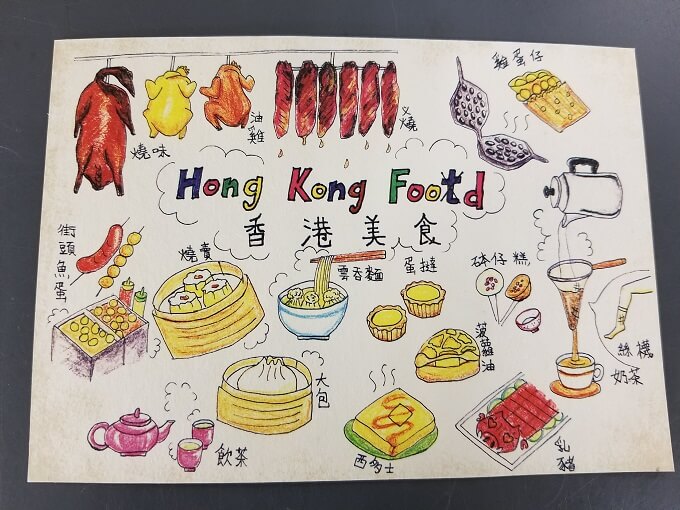 雞蛋仔
油雞
叉燒
燒味
Hong Kong Footd
香港美食
街頭魚蛋
燒賣
雲吞麵
蛋撻
砵仔糕
菠蘿油
絲襪
奶茶
大包
飲茶
西多士
乳豬